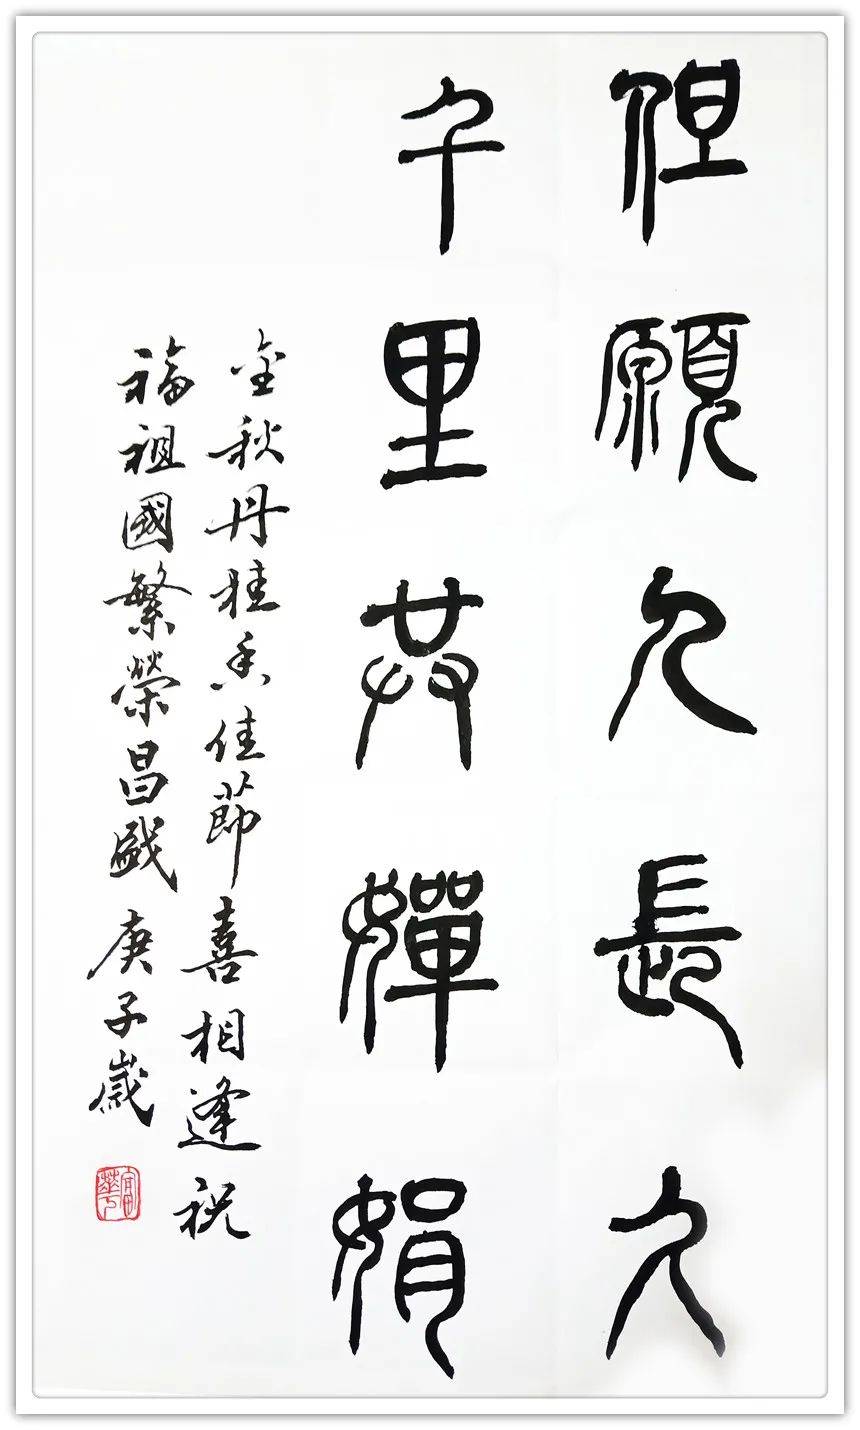 但願人長久
千里共嬋娟
金秋丹桂香佳節喜相逢祝
福祖國繁榮昌盛庚子歲